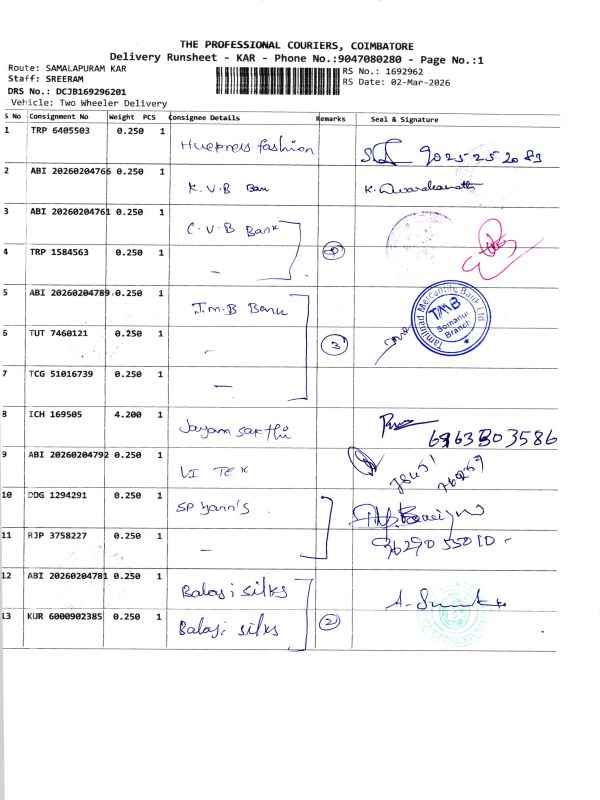 THE PROFESSIONAL COURIERS, COIMBATORE
Delivery Runsheet - KAR - Phone No.:9047080280 - Page No.:1
Route: SAMALAPURAM KAR
Staff: SREERAM
DRS No.: DCJB169296201
Vehicle: Two Wheeler Delivery
RS No.: 1692962
RS Date: 02-Mar-2026
S No Consignment No Weight PCS Consignee Details Remarks Seal & Signature
1 TRP 6405503 0.250 1 fashion 9025252089
2 ABI 20260204766 0.250 1 K.V.B Ban K. Dwarakanath
3 ABI 20260204761 0.250 1 C.V.B Bank
4 TRP 1584563 0.250 1 —
5 ABI 20260204789 0.250 1 T.M.B Bank
Tamilnad Mercantile Bank Ltd
TMB
Somanur
Branch
6 TUT 7460121 0.250 1 - 3
7 TCG 51016739 0.250 1 —
8 ICH 169505 4.200 1 Jayam sakthi
9 ABI 20260204792 0.250 1 VI TEX
10 DDG 1294291 0.250 1 SP yarn's
11 RJP 3758227 0.250 1 — 9629055010 -
12 ABI 20260204781 0.250 1 Balaji silks
13 KUR 6000902385 0.250 1 Balaji silks 2